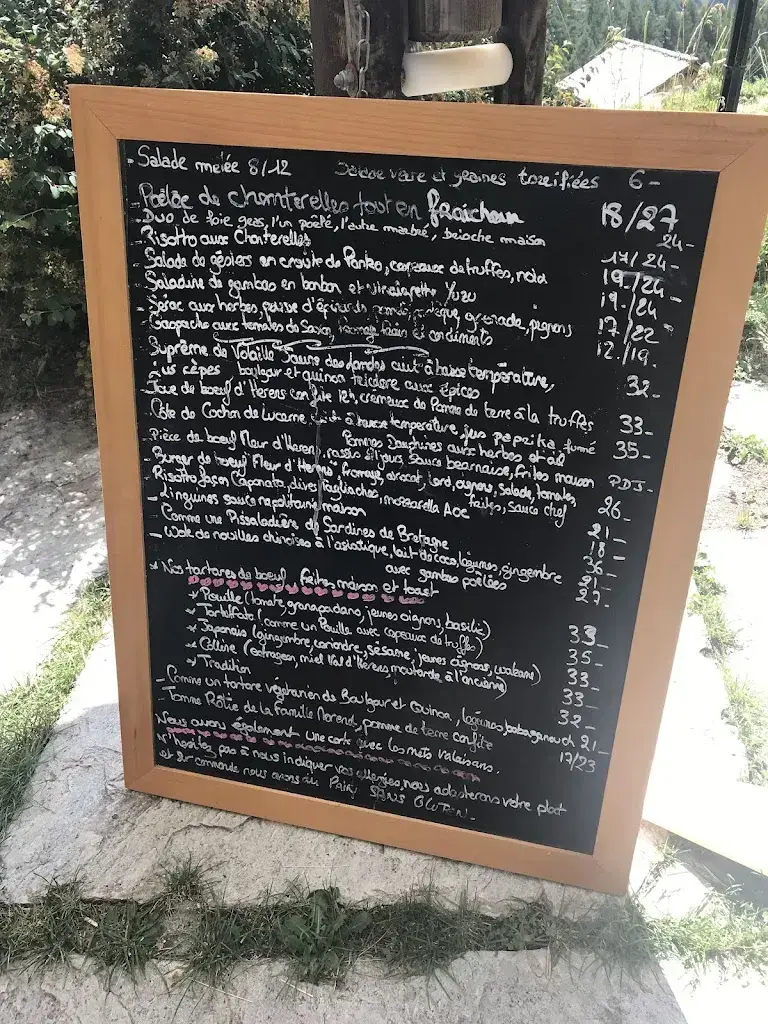 - Salade mêlée 8/12 Salade verte et graines torréfiées 6-
- Poêlée de chanterelles tout en fraîcheur 18/27
- Duo de foie gras, l'un poêlé, l'autre marbré, brioche maison 24-
- Risotto aux Chanterelles 17/24-
- Salade de gésiers en croute de Panko, copeaux de truffes, noix 19/24-
- Saladine de gambas en bonbon et vinaigrette Yuzu 19/24
- Sérac aux herbes, pousse d'épinards, grenade, pignons 17/22
- Gaspacho aux tomates de Saxon, fromage frais et condiments 12/19
- Suprême de Volaille Jaune des Landes cuit à basse température,
Jus cèpes boulgour et quinoa tricolore aux épices 32-
- Joue de boeuf d'Hérens confite 12h, crémeux de Pomme de terre à la truffes 33-
- Côte de Cochon de Lucerne, cuit à basse température, jus paprika fumé 35-
Pommes Dauphines aux herbes et ail
- Pièce de boeuf Fleur d'Hérens, rassis 21 jours, sauce béarnaise, frites maison PDJ-
- Burger de boeuf "Fleur d'Hérens" fromage, abricot, lard, oignons, salade, tomates, 26-
frites, sauce chef
- Risotto façon Caponata, olives Taggiasches, mozzarella AOC 21-
- Linguines sauce napolitaine maison 18-
- Comme une Pissaladière de Sardines de Bretagne 36-
- Wok de nouilles chinoises à l'asiatique, lait de coco, légumes, gingembre 21-
avec gambas poêlées 27-
* Nos tartares de boeuf, faites maison et toast
* Pouille (tomate, grana padano, jeunes oignons, basilic) 33-
* Tartelfata (comme un Pouille avec copeaux de truffes) 35-
* Japonais (gingembre, coriandre, sésame, jeunes oignons, wakame) 33-
* Colline (estragon, miel Val d'Hérens, moutarde à l'ancienne) 33-
* Tradition 32-
- Comme un tartare végétarien de Boulgour et Quinoa, légumes, baba ganouch 21-
- Tomme Rôtie de la famille Morend, pomme de terre confite 17/23
Nous avons également une carte avec les mets valaisans.
N'hésitez pas à nous indiquer vos allergies, nous adapterons votre plat
et sur commande nous avons du PAIN SANS GLUTEN-